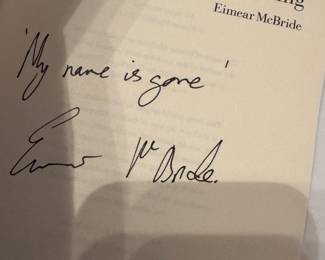 ing
Eimear McBride
'My name is gone'
Eimear McBride.